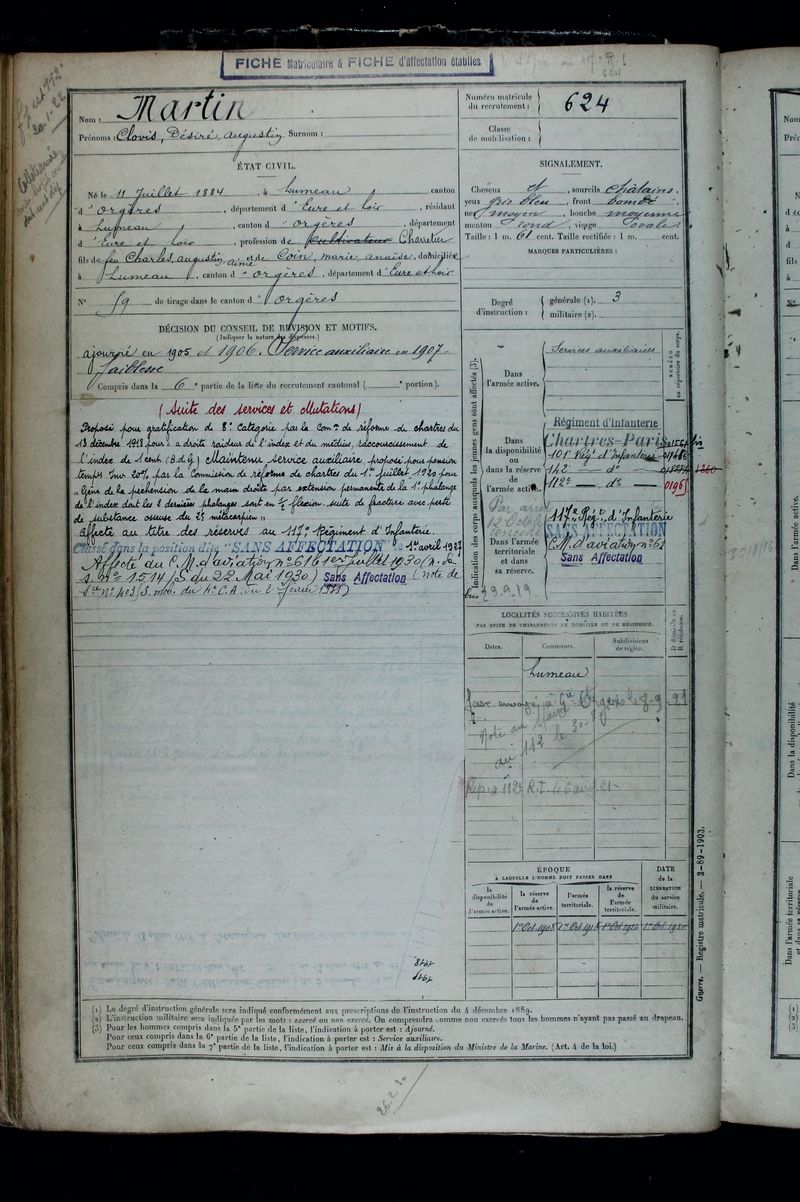 FICHE Matriculaire & FICHE d'affectation établies
Nom : Martin
Prénoms : Clovis, Désiré, Augustin Surnom :
Numéro matricule du recrutement : 624
Classe de mobilisation :
ÉTAT CIVIL.
Né le 11 Juillet 1884, à Lumeau, canton
d'Orgères, département d'Eure et Loir, résidant
à Lumeau, canton d'Orgères, département
d'Eure et Loir, profession de Cultivateur Charretier
fils de feu Charles Augustin Aimé et de Coin, Marie Anaïse, domiciliés
à Lumeau, canton d'Orgères, département d'Eure et Loir
N° 59 de tirage dans le canton d'Orgères
SIGNALEMENT.
Cheveux et, sourcils châtains,
yeux gris bleu, front bombé,
nez moyen, bouche moyenne
menton rond, visage ovale
Taille : 1 m. 61 cent. Taille rectifiée : 1 m. cent.
MARQUES PARTICULIÈRES :
Degré d'instruction : générale (1). 3
militaire (2).
DÉCISION DU CONSEIL DE RÉVISION ET MOTIFS.
(Indiquer la nature des dispenses.)
Ajourné en 1905 et 1906. Service auxiliaire en 1907
faiblesse
Compris dans la 6e partie de la liste du recrutement cantonal ( e portion).
(Suite des services et Mutations)
Proposé pour gratification de 8e Catégorie par la Comon de réforme de Chartres du
13 décembre 1918 pour : a droite raideur de l'index et du médius, raccourcissement de
l'index de 1 cent (B.d.G.) Maintenu service auxiliaire, proposé pour pension
temps Inv 20% par la Commission de réforme de Chartres du 1er Juillet 1920 pour
" Gêne de la préhension de la main droite par extension permanente de la 1e phalange
de l'index dont les 2 dernières phalanges sont en 1/2 flexion suite de fracture avec perte
de substance osseuse du 2e métacarpien "
Affecté au titre des réserves au 117e Régiment d'Infanterie.
Classé dans la position dite "SANS AFFECTATION" le 1er avril 1927
Affecté au C.M. d'aviation n° 61 1er juillet 1930 (N. de
s. n° 1514/S du 22 Mai 1930) Sans Affectation (note de
Sce N° 403/S. mob. du 4e C.A. du 2 février 1931)
Indication des corps auxquels les jeunes gens sont affectés (3).
NUMÉRO au répertoire du corps.
Dans l'armée active.
Services auxiliaires
Dans la disponibilité ou dans la réserve de l'armée active.
Régiment d'Infanterie
Chartres-Paris
101e Rég. d'Infanterie
142e do
112e do
Dans l'armée territoriale et dans sa réserve.
117e Régt d'Infanterie
SANS AFFECTATION
C.M. d'aviation n° 61
Sans Affectation
LOCALITÉS SUCCESSIVES HABITÉES
PAR SUITE DE CHANGEMENTS DE DOMICILE OU DE RÉSIDENCE.
Dates. Communes. Subdivisions de région. D domicile ou R résidence.
Lumeau
ÉPOQUE
À LAQUELLE L'HOMME DOIT PASSER DANS
DATE de la LIBÉRATION du service militaire.
la disponibilité de l'armée active.
la réserve de l'armée active.
l'armée territoriale.
la réserve de l'armée territoriale.
1er Oct 1908 1er Oct 1918 1er Oct 1924 1er Oct 1930
Guerre. — Registre matricule. — 2-89-1903.
(1) Le degré d'instruction générale sera indiqué conformément aux prescriptions de l'instruction du 4 décembre 1889.
(2) L'instruction militaire sera indiquée par les mots : exercé ou non exercé. On comprendra comme non exercés tous les hommes n'ayant pas passé au drapeau.
(3) Pour les hommes compris dans la 5e partie de la liste, l'indication à porter est : Ajourné.
Pour ceux compris dans la 6e partie de la liste, l'indication à porter est : Service auxiliaire.
Pour ceux compris dans la 7e partie de la liste, l'indication à porter est : Mis à la disposition du Ministre de la Marine. (Art. 4 de la loi.)